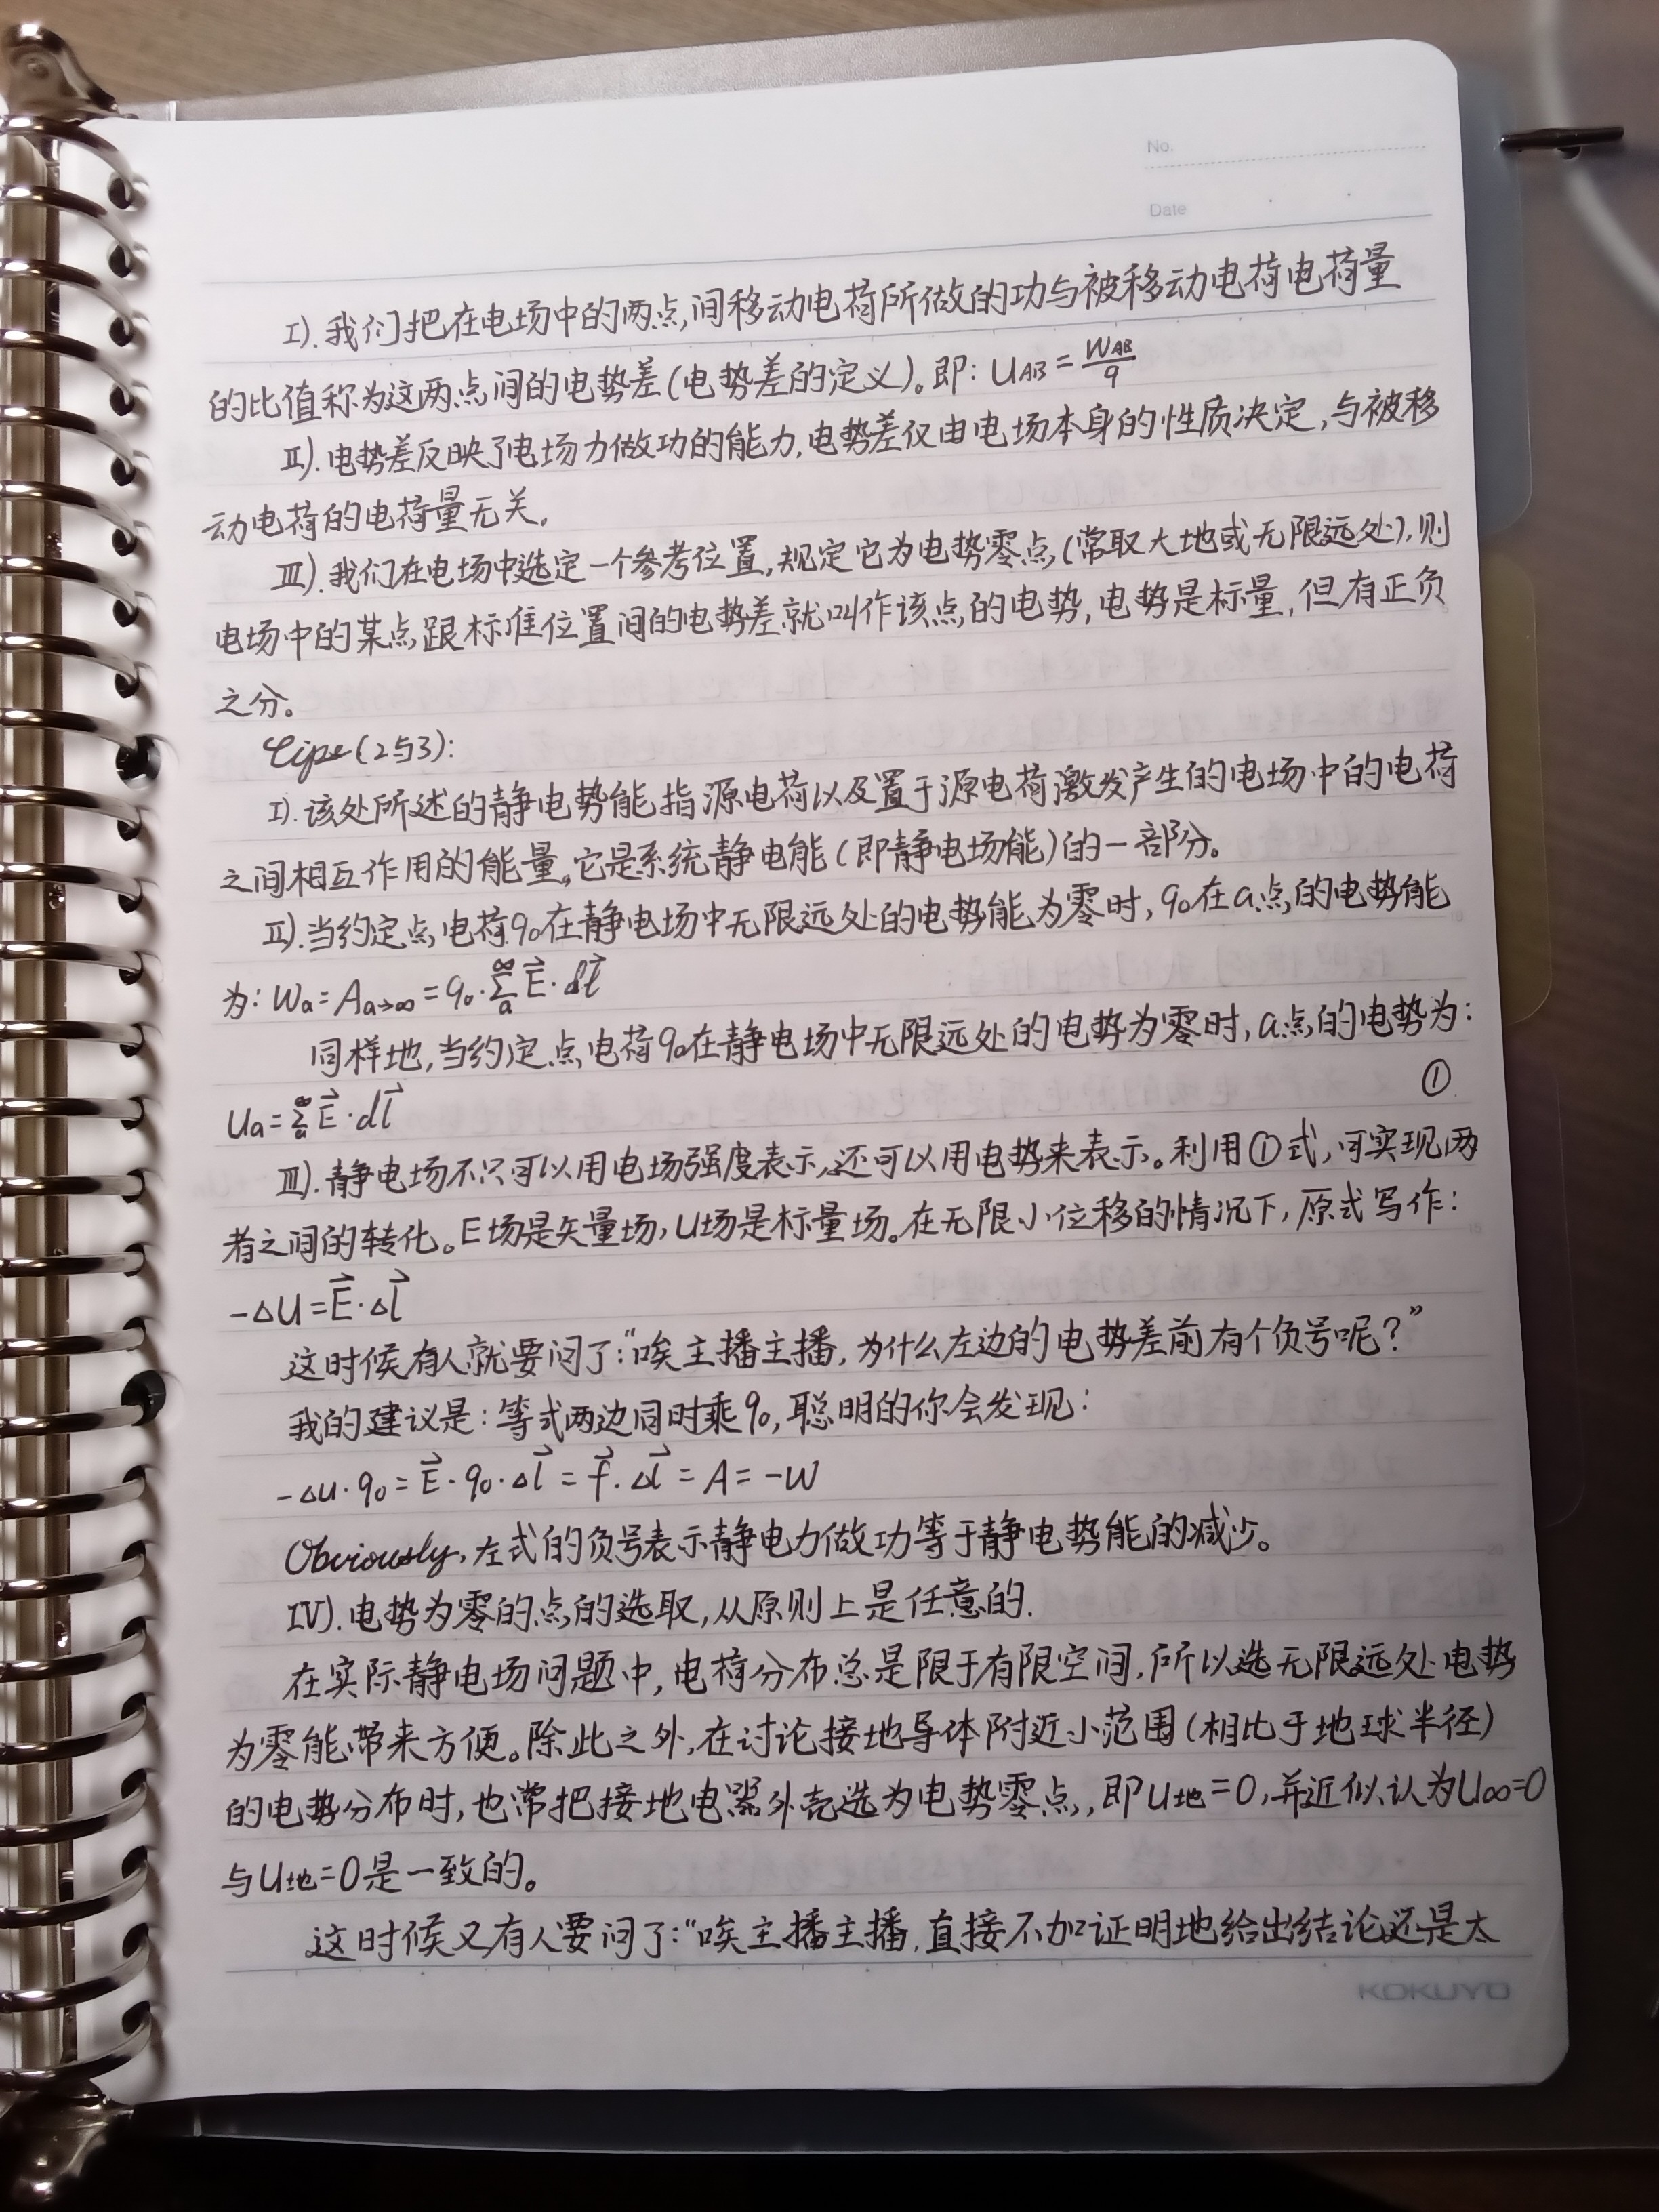 No.
Date
I).我们把在电场中的两点间移动电荷所做的功与被移动电荷电荷量
的比值称为这两点间的电势差(电势差的定义)。即: U_AB = W_AB/q
II).电势差反映了电场力做功的能力,电势差仅由电场本身的性质决定,与被移
动电荷的电荷量无关.
III).我们在电场中选定一个参考位置,规定它为电势零点(常取大地或无限远处),则
电场中的某点跟标准位置间的电势差就叫作该点的电势,电势是标量,但有正负
之分。
Tips(2与3):
I).该处所述的静电势能指源电荷以及置于源电荷激发产生的电场中的电荷
之间相互作用的能量,它是系统静电能(即静电场能)的一部分。
II).当约定点电荷q₀在静电场中无限远处的电势能为零时,q₀在a点的电势能
为: Wa=A_a→∞ =q₀·∑_a^∞ E⃗·dl⃗
同样地,当约定点电荷q₀在静电场中无限远处的电势为零时,a点的电势为:
Ua=∑_a^∞ E⃗·dl⃗ ①
III).静电场不只可以用电场强度表示,还可以用电势来表示。利用①式,可实现两
者之间的转化。E场是矢量场,U场是标量场.在无限小位移的情况下,原式写作:
-△U=E⃗·△l⃗
这时候有人就要问了:“唉主播主播,为什么左边的电势差前有个负号呢?”
我的建议是:等式两边同时乘q₀,聪明的你会发现:
-△u·q₀=E⃗·q₀·△l⃗=f⃗·△l⃗=A=-W
Obviously,左式的负号表示静电力做功等于静电势能的减少。
IV).电势为零的点的选取,从原则上是任意的.
在实际静电场问题中,电荷分布总是限于有限空间,所以选无限远处电势
为零能带来方便。除此之外,在讨论接地导体附近小范围(相比于地球半径)
的电势分布时,也常把接地电器外壳选为电势零点,即U地=0,并近似认为U∞=0
与U地=0是一致的。
这时候又有人要问了:“唉主播主播,直接不加证明地给出结论还是太
KOKUYO